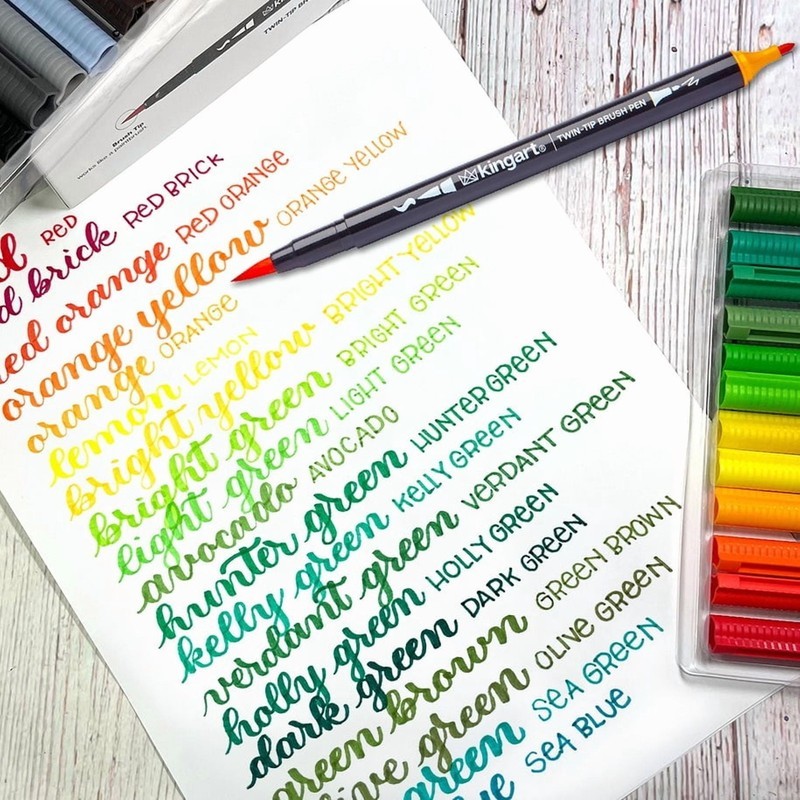 TWIN-TIP BR
Brush Tip
Works like a paintbrush
kingart® | TWIN-TIP BRUSH PEN
RED
d brick RED BRICK
red orange RED ORANGE
orange yellow ORANGE YELLOW
orange ORANGE
lemon LEMON
bright yellow BRIGHT YELLOW
bright green BRIGHT GREEN
light green LIGHT GREEN
avocado AVOCADO
hunter green HUNTER GREEN
kelly green KELLY GREEN
verdant green VERDANT GREEN
holly green HOLLY GREEN
dark green DARK GREEN
green brown GREEN BROWN
olive green OLIVE GREEN
green SEA GREEN
ue SEA BLUE